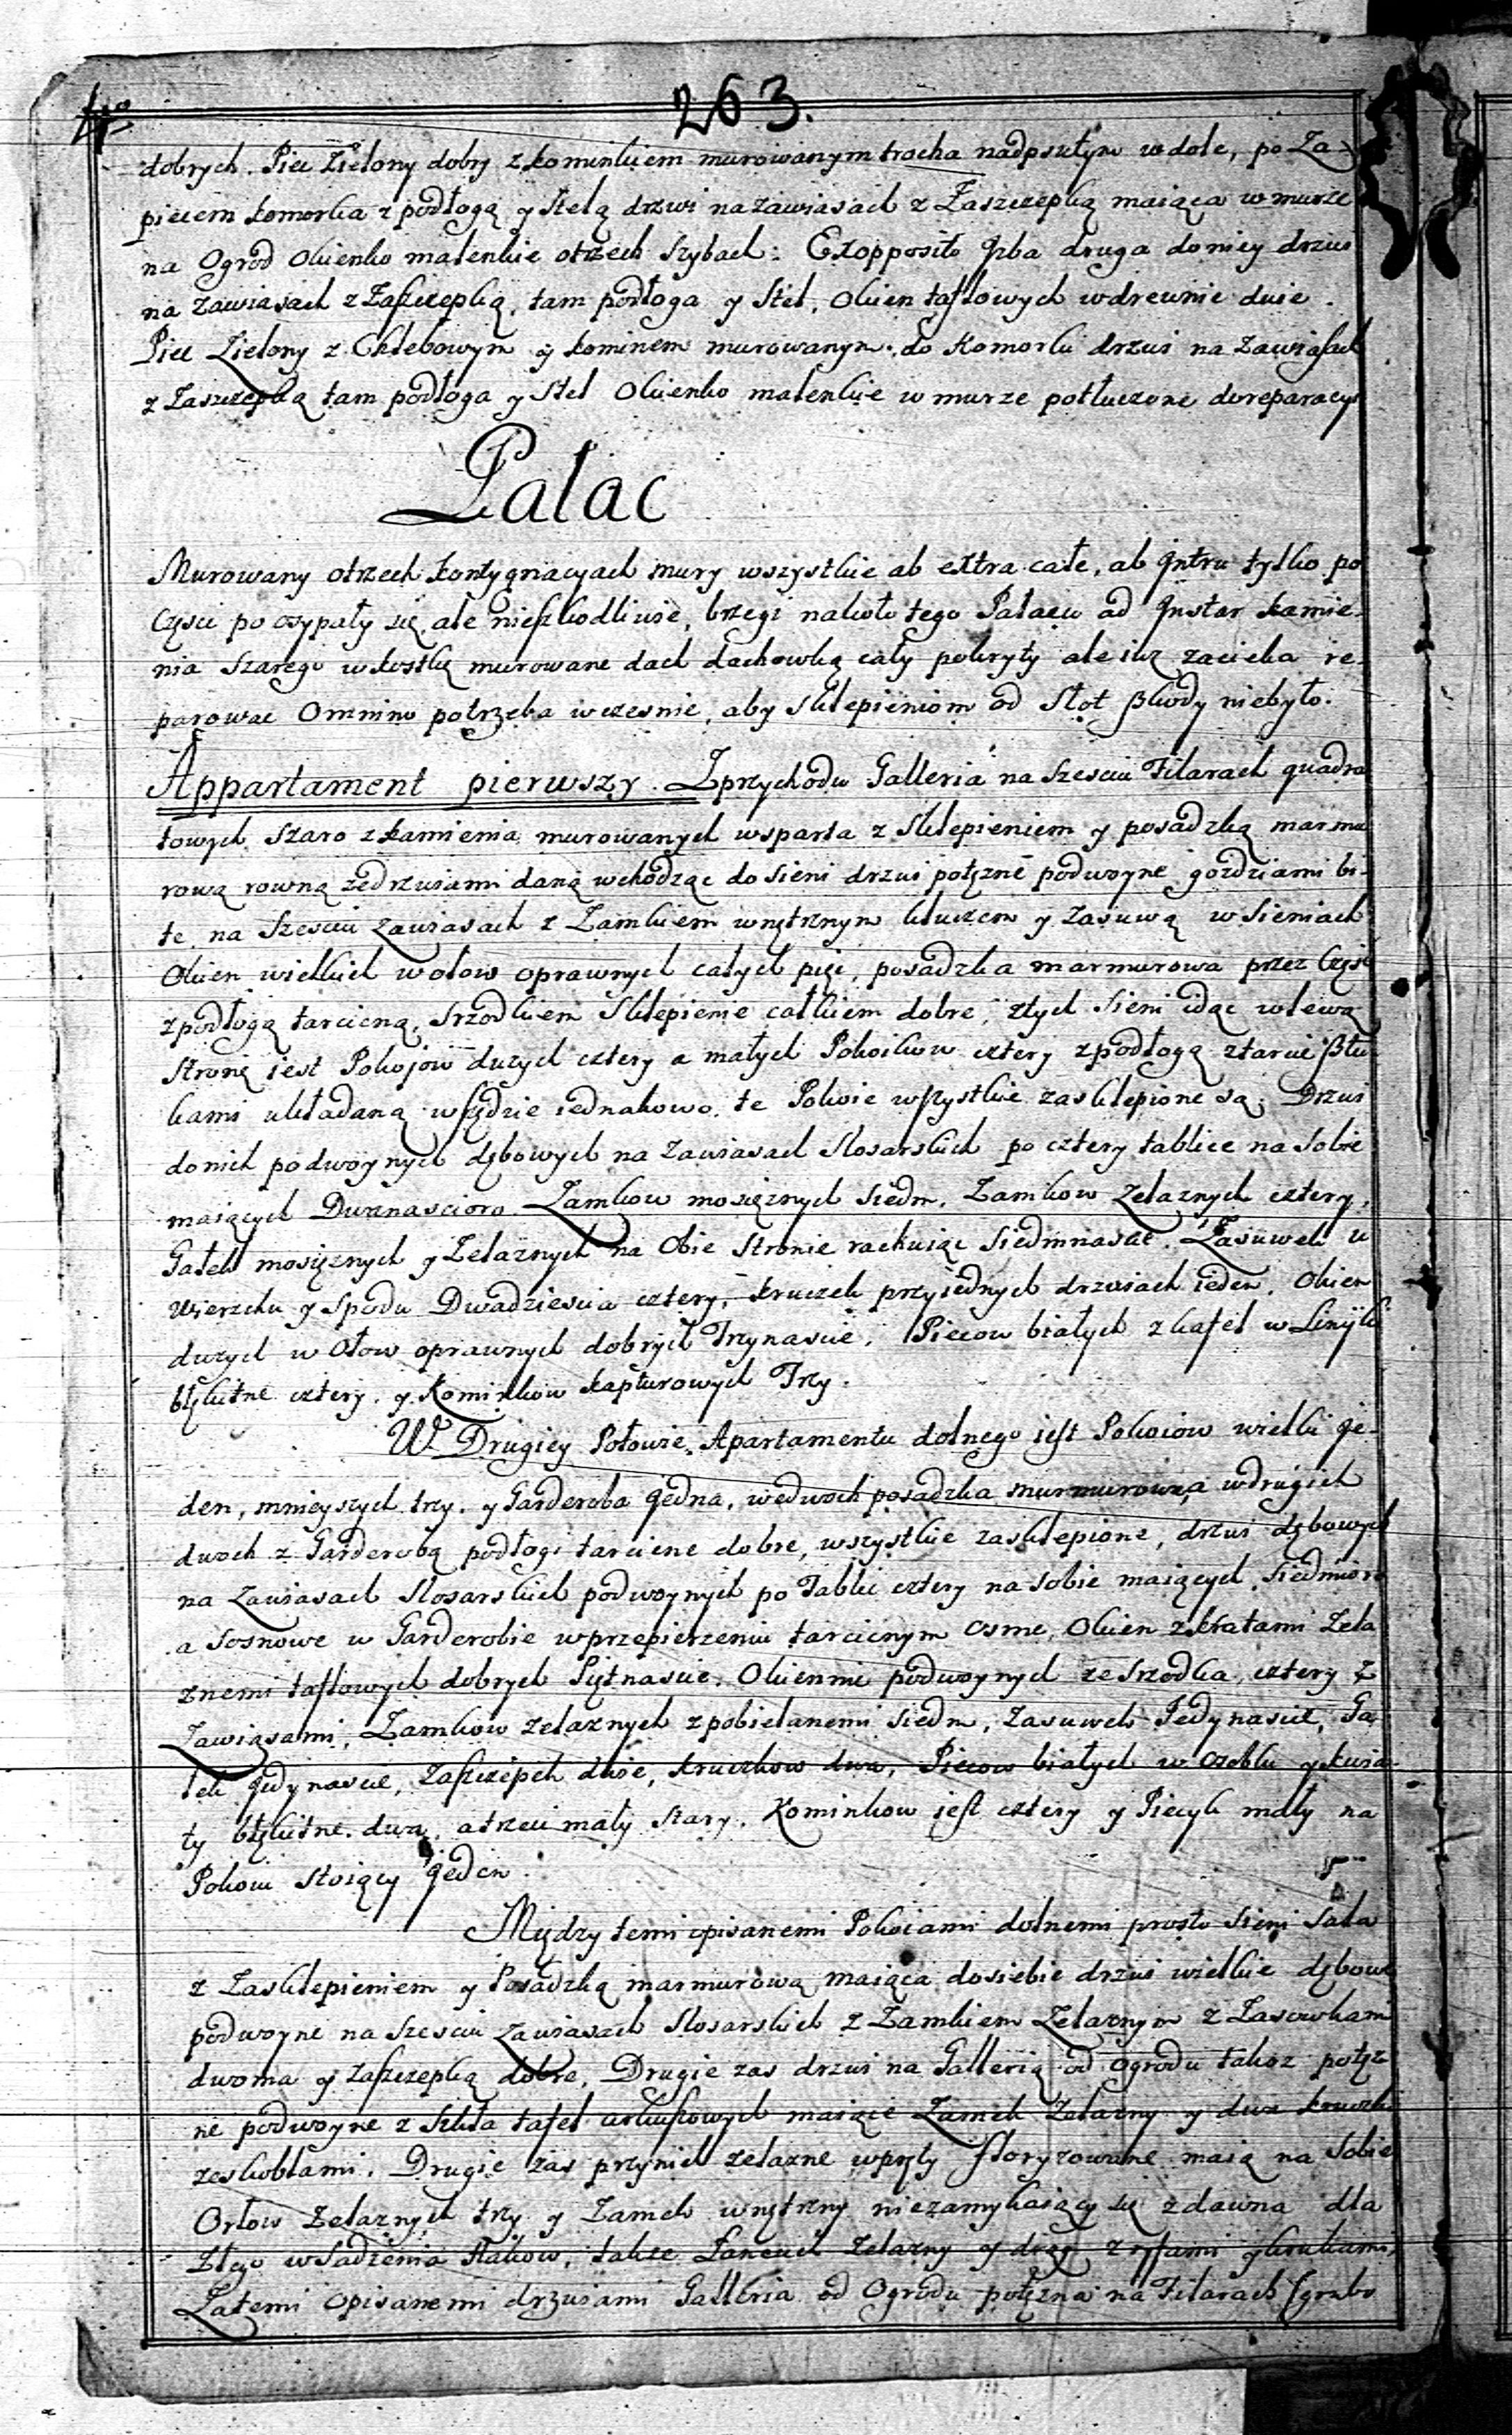 263.
dobrych. Piec Zielony dobry z kominkiem murowanym trocha nadpsutym w dole, po Za-
piecem komorka z podłogą y Stelą drzwi na zawiasach z Zaszczepką maiąca w murze
na Ogrod Okienko malenkie o trzech Szybach: Exopposito Jzba druga do niey drzwi
na zawiasach z Zaszczepką, tam podłoga y Stel, Okien taflowych w drewnie dwie.
Piec Zielony z Chlebowym y kominem murowanym, do Komorki drzwi na zawiasach
z Zaszczepką tam podłoga y Stel Okienko malenkie w murze potłuczone do reparacyi
Pałac
Murowany o trzech kontygnacyach mury wszystkie ab extra całe, ab Jntra tylko po
Częsci poosypały się, ale nieszkodliwie, brzegi nakoło tego Pałacu ad Jnstar kamie-
nia Szarego w kostkę murowane dach dachowką cały pokryty ale iuz zacieka re-
parowac Omnino potrzeba wczesnie, aby Sklepieniom od Słot szkody niebyło.
Appartament pierwszy. Z przychodu Galleria na Szesciu Filarach quadra
towych Szaro z kamienia murowanych wsparta z Sklepieniem y posadzką marmu
rową rowną ze drzwiami daną wchodząc do Sieni drzwi potęzne podwoyne gozdziami bi-
te, na Szesciu zawiasach z Zamkiem wnętrznym kluczem y Zasuwą w Sieniach
Okien wielkich w ołow oprawnych całych pięc, posadzka marmurowa przez Częsc
z podłogą tarcicną, Srzodkiem Sklepienie całkiem dobre, z tych Sieni idąc w lewą
Stronę iest Pokojow duzych cztery a małych Pokoikow cztery z podłogą z tarcic sztu
kami układaną wszędzie iednakowo. te Pokoie wszystkie zasklepione są; Drzwi
do nich podwoynych dębowych na zawiasach Slosarskich po cztery tablice na Sobie
maiących Dwanascioro Zamkow mosięznych Siedm, Zamkow Zelaznych cztery,
Gałek mosięznych y Zelaznych na Obie Stronie rachuiąc Siedmnascie. Zasuwek u
wierzchu y Spodu Dwadziescia cztery, kruczek przy iednych drzwiach ieden. Okien
duzych w Ołow oprawnych dobrych Trzynascie. Piecow białych z kafel w Liniyki
błękitne cztery. y Kominkow kapturowych Trzy.
W Drugiey Połowie Apartamentu dolnego jest Pokoiow wielki Je-
den, mnieyszych trzy. y Garderoba Jedna, w dwoch posadzka murmurowa w drugich
dwoch z Garderobą podłogi tarcicne dobre, wszystkie zasklepione, drzwi dębowych
na Zawiasach Slosarskich podwoynych po Tablic cztery na Sobie maiących Siedmioro
a Sosnowe w Garderobie w przepierzeniu tarcicnym osme, Okien z kratami Zela
znemi taflowych dobrych Piętnascie, Okiennic podwoynych ze Srzodka cztery z
Zawiasami, Zamkow zelaznych z pobielanemi Siedm, Zasuwek Jedynascie, Ga
łek Jedynascie, Zaszczepek dwie, kruczkow dwa, Piecow białych w Osobki y kwia-
ty błękitne. dwa, a trzeci mały stary. Kominkow jest cztery y Piecyk mały na
Pokoiu stoiący Jeden.
Między temi opisanemi Pokoiami dolnemi prosto Sieni Sala
z Zasklepieniem y Posadzką marmurową maiąca do siebie drzwi wielkie dębowe
podwoyne na Szesciu Zawiasach Slosarskich z Zamkiem Zelaznym z Zasowkami
dwoma y Zaszczepką dobre, Drugie zas drzwi na Gallerią od Ogrodu takoz potęz
ne podwoyne z Szkła tafel arkuszowych maiące Zamek Zelazny y dwa kruczki
ze skoblami. Drugie zas przy nich zelazne w pręty floryzowane maią na Sobie
Orłow Zelaznych trzy y Zamek wnętrzny niezamykaiący się z dawna dla
Złego wsadzenia Hakow, takze Łancuch Zelazny y drąg z ryflami y krukami,
Za temi opisanemi drzwiami Galleria od Ogrodu potęzna na Filarach Grubo